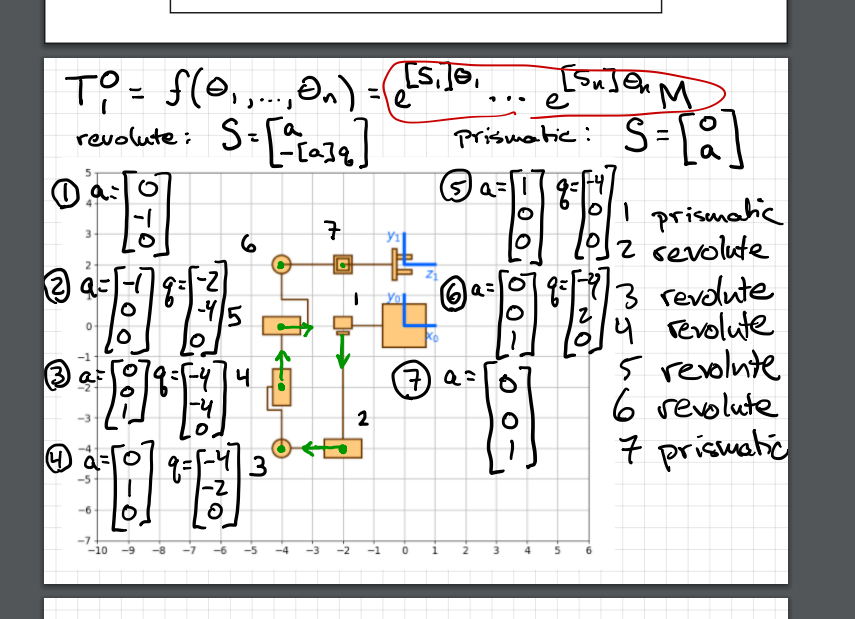 T⁰₁ = f(θ₁,...,θₙ) = e^[S₁]θ₁ ... e^[Sₙ]θₙ M
revolute: S = [a -[a]q]
prismatic: S = [0 a]
① a = [0 -1 0]
② a = [-1 0 0] q = [-2 -4 0]
③ a = [0 0 1] q = [-4 -4 0]
④ a = [0 1 0] q = [-4 -2 0]
⑤ a = [1 0 0] q = [-4 0 0]
⑥ a = [0 0 1] q = [-4 2 0]
⑦ a = [0 0 1]
1 prismatic
2 revolute
3 revolute
4 revolute
5 revolute
6 revolute
7 prismatic
6
7
5
1
4
2
3
y₁
z₁
y₀
x₀
5
4
3
2
1
0
−1
−2
−3
−4
−5
−6
−7
−10 −9 −8 −7 −6 −5 −4 −3 −2 −1 0 1 2 3 4 5 6